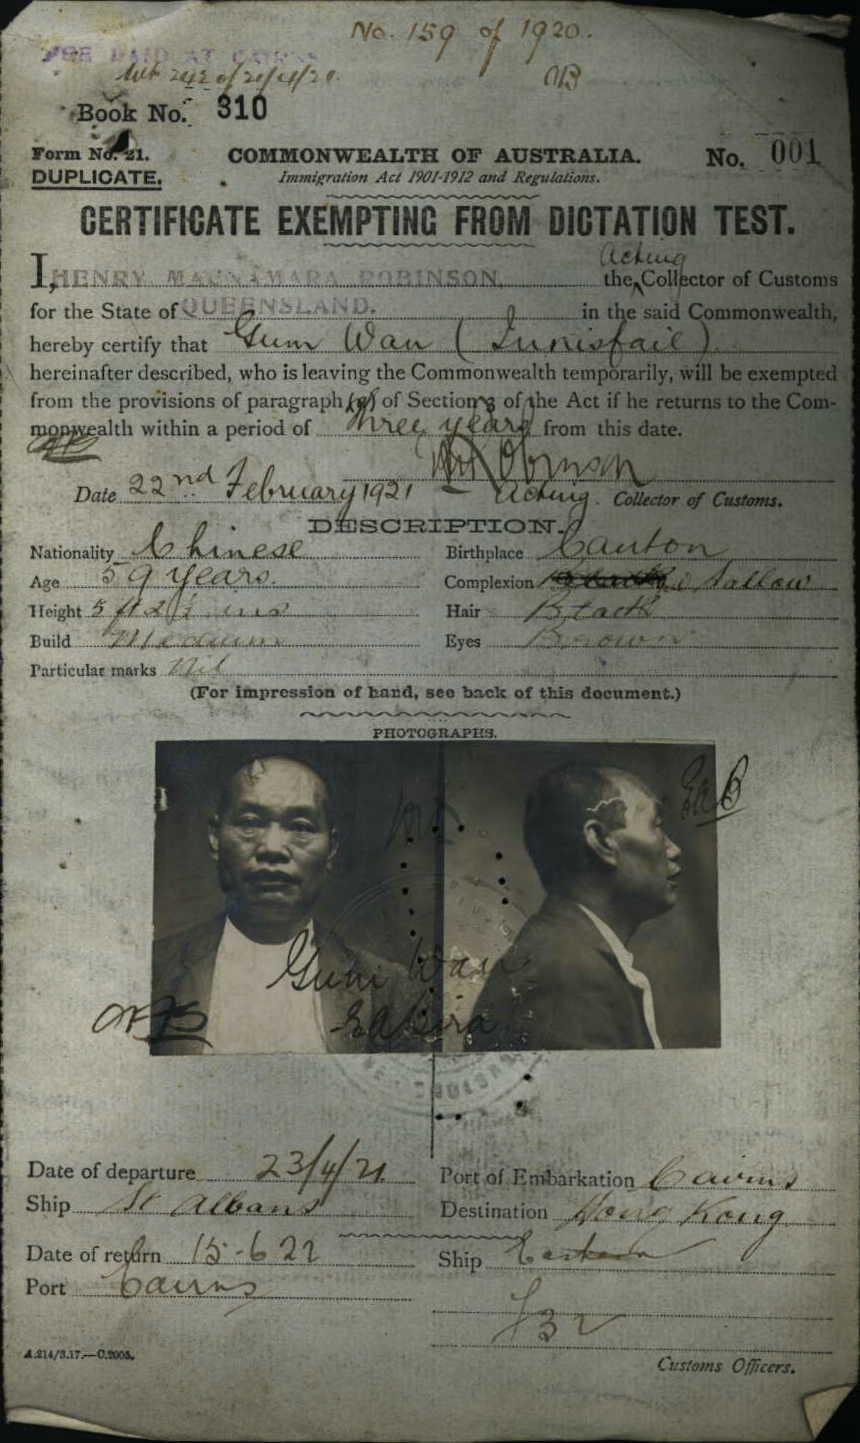 No. 159 of 1920.
FEE PAID AT CAIRNS
Book No. 310
Form No. 21.
COMMONWEALTH OF AUSTRALIA.
No. 001
DUPLICATE.
Immigration Act 1901-1912 and Regulations.
CERTIFICATE EXEMPTING FROM DICTATION TEST.
I, HENRY MACNAMARA ROBINSON, the Acting Collector of Customs
for the State of QUEENSLAND. in the said Commonwealth,
hereby certify that Gum Wan (Innisfail)
hereinafter described, who is leaving the Commonwealth temporarily, will be exempted
from the provisions of paragraph (a) of Section 3 of the Act if he returns to the Com-
monwealth within a period of three years from this date.
HM Robinson
Date 22nd February 1921 Acting Collector of Customs.
DESCRIPTION.
Nationality Chinese Birthplace Canton
Age 59 years. Complexion Sallow
Height 5 ft 2½ ins Hair Black
Build Medium Eyes Brown
Particular marks Nil
(For impression of hand, see back of this document.)
PHOTOGRAPHS.
Gum Wan
Date of departure 23/4/21 Port of Embarkation Cairns
Ship St Albans Destination Hong Kong
Date of return 15-6 22 Ship Eastern
Port Cairns
A.214/3.17.—C.2005.
Customs Officers.